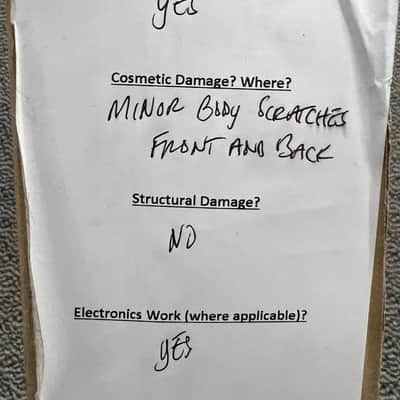 YES
Cosmetic Damage? Where?
MINOR BODY SCRATCHES
FRONT AND BACK
Structural Damage?
NO
Electronics Work (where applicable)?
YES